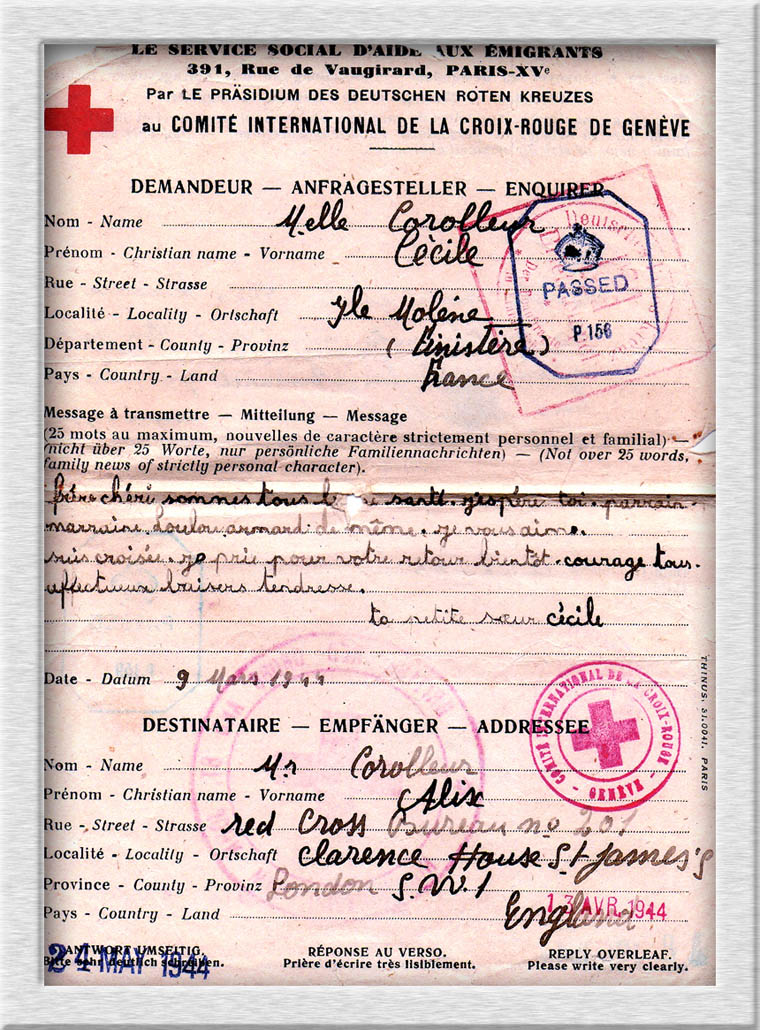 LE SERVICE SOCIAL D'AIDE AUX ÉMIGRANTS
391, Rue de Vaugirard, PARIS-XVe
Par LE PRÄSIDIUM DES DEUTSCHEN ROTEN KREUZES
au COMITÉ INTERNATIONAL DE LA CROIX-ROUGE DE GENÈVE
DEMANDEUR — ANFRAGESTELLER — ENQUIRER
Nom - Name Melle Corolleur
Prénom - Christian name - Vorname Cécile
Rue - Street - Strasse
Localité - Locality - Ortschaft Ile Molène
Département - County - Provinz (Finistère)
Pays - Country - Land France
PASSED
P.156
Message à transmettre — Mitteilung — Message
(25 mots au maximum, nouvelles de caractère strictement personnel et familial) —
(nicht über 25 Worte, nur persönliche Familiennachrichten) — (Not over 25 words,
family news of strictly personal character).
frère chéri sommes tous santé j'espère toi. parrain
marraine Loulou armand de même. je vous aime.
suis croisée. je prie pour votre retour bientôt. courage tous.
affectueux baisers tendresse.
ta petite sœur cécile
Date - Datum 9 Mars 1944
THINUS, 31.0041, PARIS
DESTINATAIRE — EMPFÄNGER — ADDRESSEE
COMITÉ INTERNATIONAL DE LA CROIX-ROUGE - GENÈVE -
Nom - Name Mr Corolleur
Prénom - Christian name - Vorname Alix
Rue - Street - Strasse red Cross Bureau no 201
Localité - Locality - Ortschaft Clarence House St James's
Province - County - Provinz London S.W.1
Pays - Country - Land England
13 AVR. 1944
ANTWORT UMSEITIG. RÉPONSE AU VERSO. REPLY OVERLEAF.
Bitte sehr deutlich schreiben. Prière d'écrire très lisiblement. Please write very clearly.
24 MAY 1944